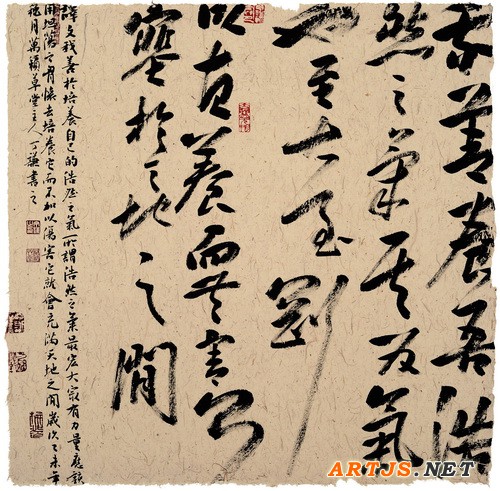 我善養吾浩
然之氣其为氣
也至大至剛
以直養而無害則
塞於天地之間
譯文我善於培養自己的浩然之氣所謂浩然之氣最宏大最有力量應該
用坦蕩之胸懷去培養它而不加以傷害它就會充滿天地之間歲次乙未年
月萬籟草堂主人丁謙書之
ARTJS.NET